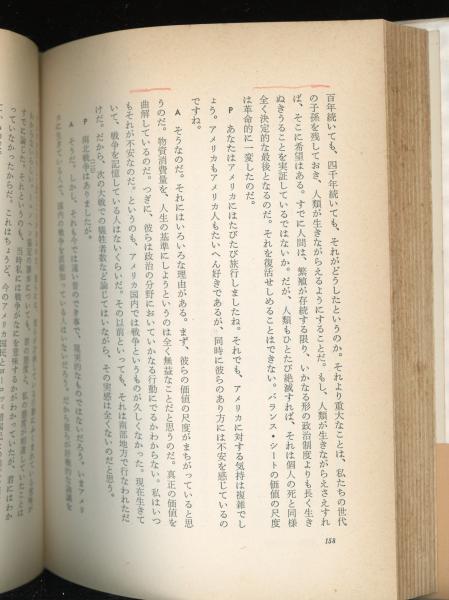 百年続いても、四千年続いても、それがどうしたというのか。それより重大なことは、私たちの世代
の子孫を残しておき、人類が生きながらえるようにすることだ。もし、人類が生きながらえさえすれ
ば、そこに希望はある。すでに人間は、繁殖が存続する限り、いかなる形の政治制度よりも長く生き
ぬきうることを実証しているではないか。だが、人類もひとたび絶滅すれば、それは個人の死と同様
全く決定的な最後となるのだ。それを復活せしめることはできない。バランス・シートの価値の尺度
は革命的に一変したのだ。
P あなたはアメリカにはたびたび旅行しましたね。それでも、アメリカに対する気持は複雑でし
ょう。アメリカもアメリカ人もたいへん好きであるが、同時に彼らのあり方には不安を感じているの
ですね。
A そうなのだ。それにはいろいろな理由がある。まず、彼らの価値の尺度がまちがっていると思
うのだ。物資消費量を、人生の基準にしようというのは全く無益なことだと思うのだ。真正の価値を
曲解しているのだ。つぎに、彼らは政治の分野においていかなる行動にでるかわからない。私はいつ
もそれが不安なのだ。というのも、アメリカ国内では戦争というものが久しくなかった。現在生きて
いて、戦争を記憶している人はないくらいだ。その以前といっても、それは南部地方で行なわれただ
けだ。だから、次の大戦での犠牲者数など論じてはいながら、その実感は全くないのだと思う。
P 南北戦争はありましたが。
A そうだ。しかし、それも今では遠い昔のでき事で、現実的なものではないだろう。いまアメリ
カに生きている人で、国内の戦争を直接知っている人はいないだろう。だから彼らが
すでに論じた。それというのも、当時私には戦争がなにを意味するかがわかっていたが、君にはわか
っていなかったからだ。これはちょうど、今のアメリカ国民とヨーロッパ
158